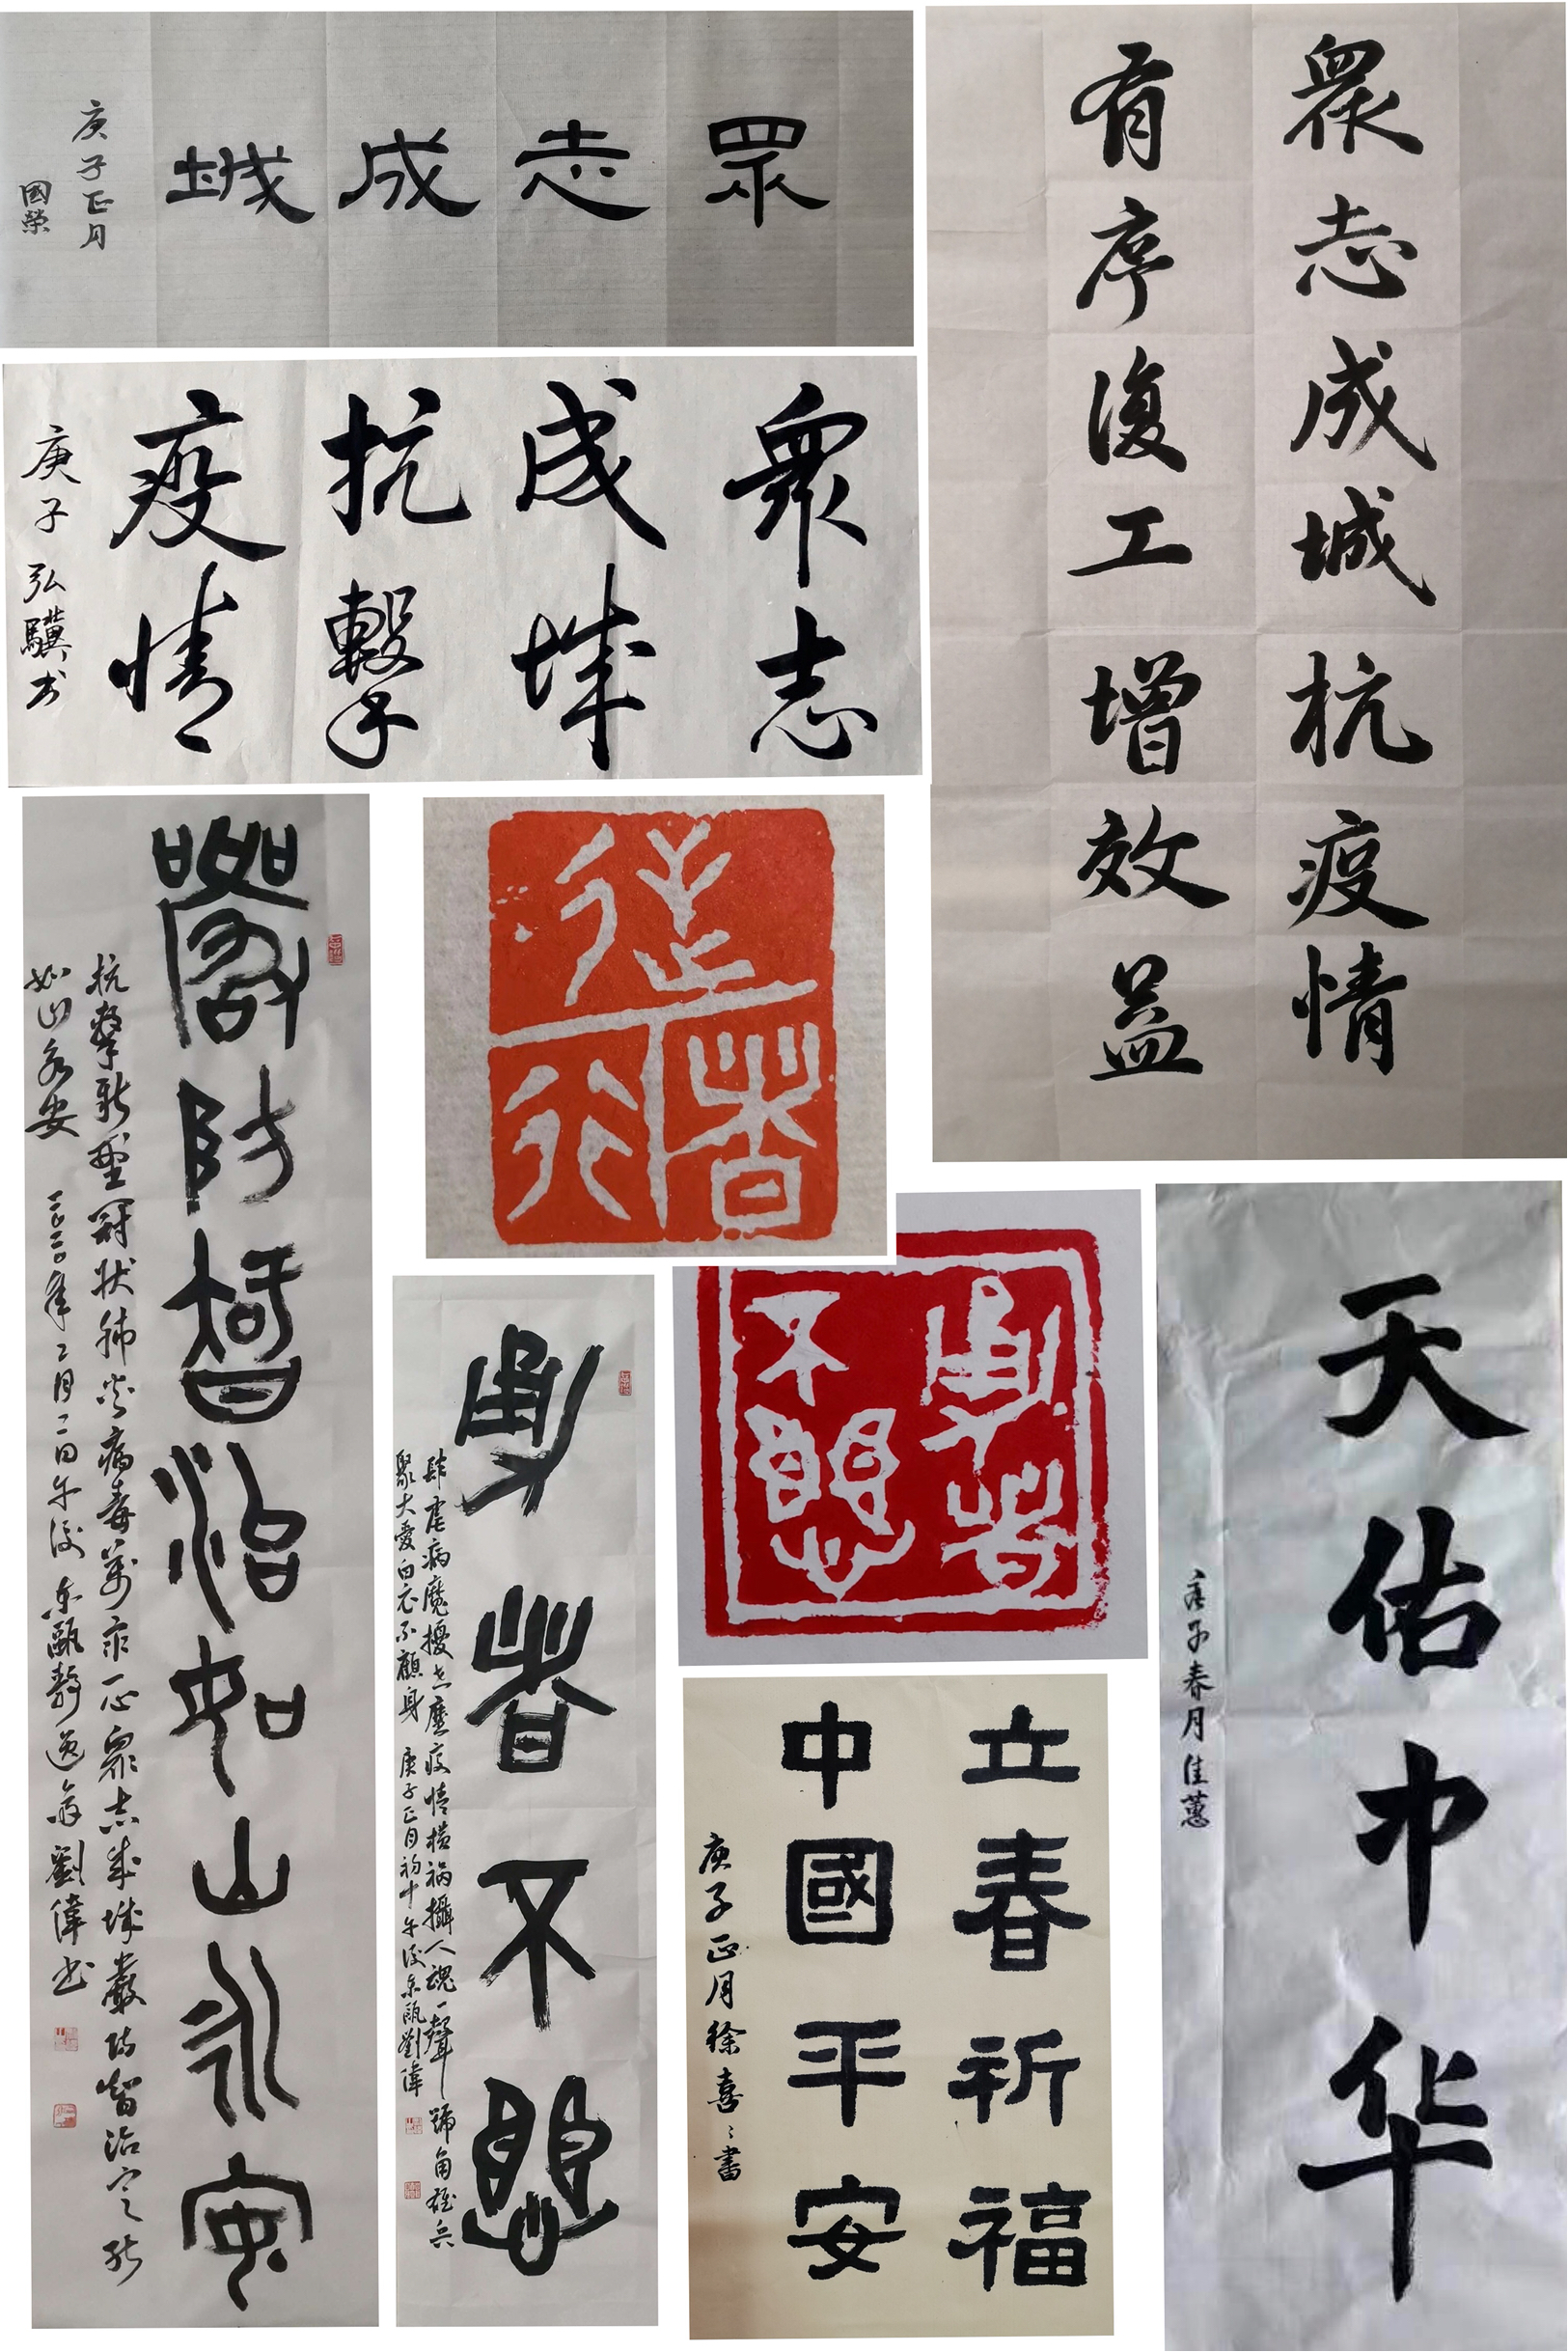 眾志成城
庚子正月
國榮
眾志
成城
抗擊
疫情
庚子 弘驥书
眾志成城抗疫情
有序復工增效益
嚴防智治如山永安
抗擊新型冠狀肺炎病毒萬众一心眾志成城嚴防智治定能
如山永安 二〇二〇年二月二日午後 东甌 逸翁劉偉书
逆
春
行
勇者
不惧
勇者不惧
肆虐病魔擾 疫情橫禍攝人魂一聲號角雄兵
聚大愛白衣不顧身 庚子正月初十午後东甌劉偉
立春祈福
中國平安
庚子正月徐喜〻書
天佑中华
庚子春月佳蕙